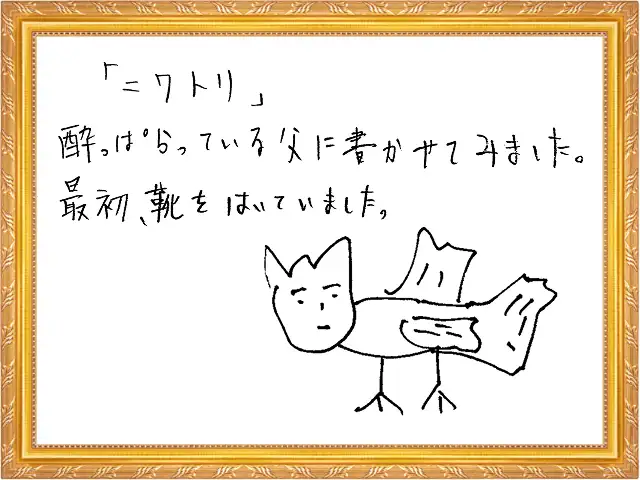 「ニワトリ」
酔っぱらっている父に書かせてみました。
最初、靴をはいていました。